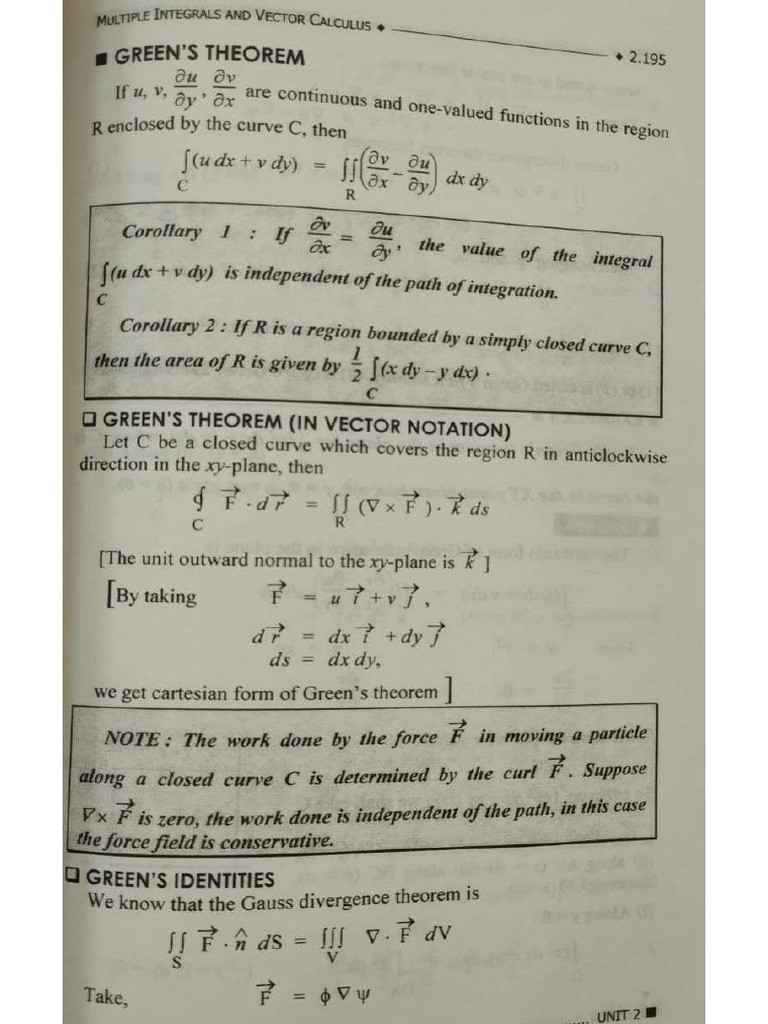 MULTIPLE INTEGRALS AND VECTOR CALCULUS ◆
◆ 2.195
■ GREEN'S THEOREM
If u, v, ∂u/∂y, ∂v/∂x are continuous and one-valued functions in the region
R enclosed by the curve C, then
∫_C (u dx + v dy) = ∬_R (∂v/∂x − ∂u/∂y) dx dy
Corollary 1 : If ∂v/∂x = ∂u/∂y, the value of the integral
∫_C (u dx + v dy) is independent of the path of integration.
Corollary 2 : If R is a region bounded by a simply closed curve C,
then the area of R is given by 1/2 ∫_C (x dy − y dx) .
❑ GREEN'S THEOREM (IN VECTOR NOTATION)
Let C be a closed curve which covers the region R in anticlockwise
direction in the xy-plane, then
∮_C F⃗ . d r⃗ = ∬_R (∇ × F⃗ ) . k⃗ ds
[The unit outward normal to the xy-plane is k⃗ ]
[By taking F⃗ = u i⃗ + v j⃗ ,
d r⃗ = dx i⃗ + dy j⃗
ds = dx dy,
we get cartesian form of Green's theorem ]
NOTE : The work done by the force F⃗ in moving a particle
along a closed curve C is determined by the curl F⃗ . Suppose
∇× F⃗ is zero, the work done is independent of the path, in this case
the force field is conservative.
❑ GREEN'S IDENTITIES
We know that the Gauss divergence theorem is
∬_S F⃗ . n̂ dS = ∭_V ∇ . F⃗ dV
Take, F⃗ = ϕ ∇ ψ
UNIT 2 ■